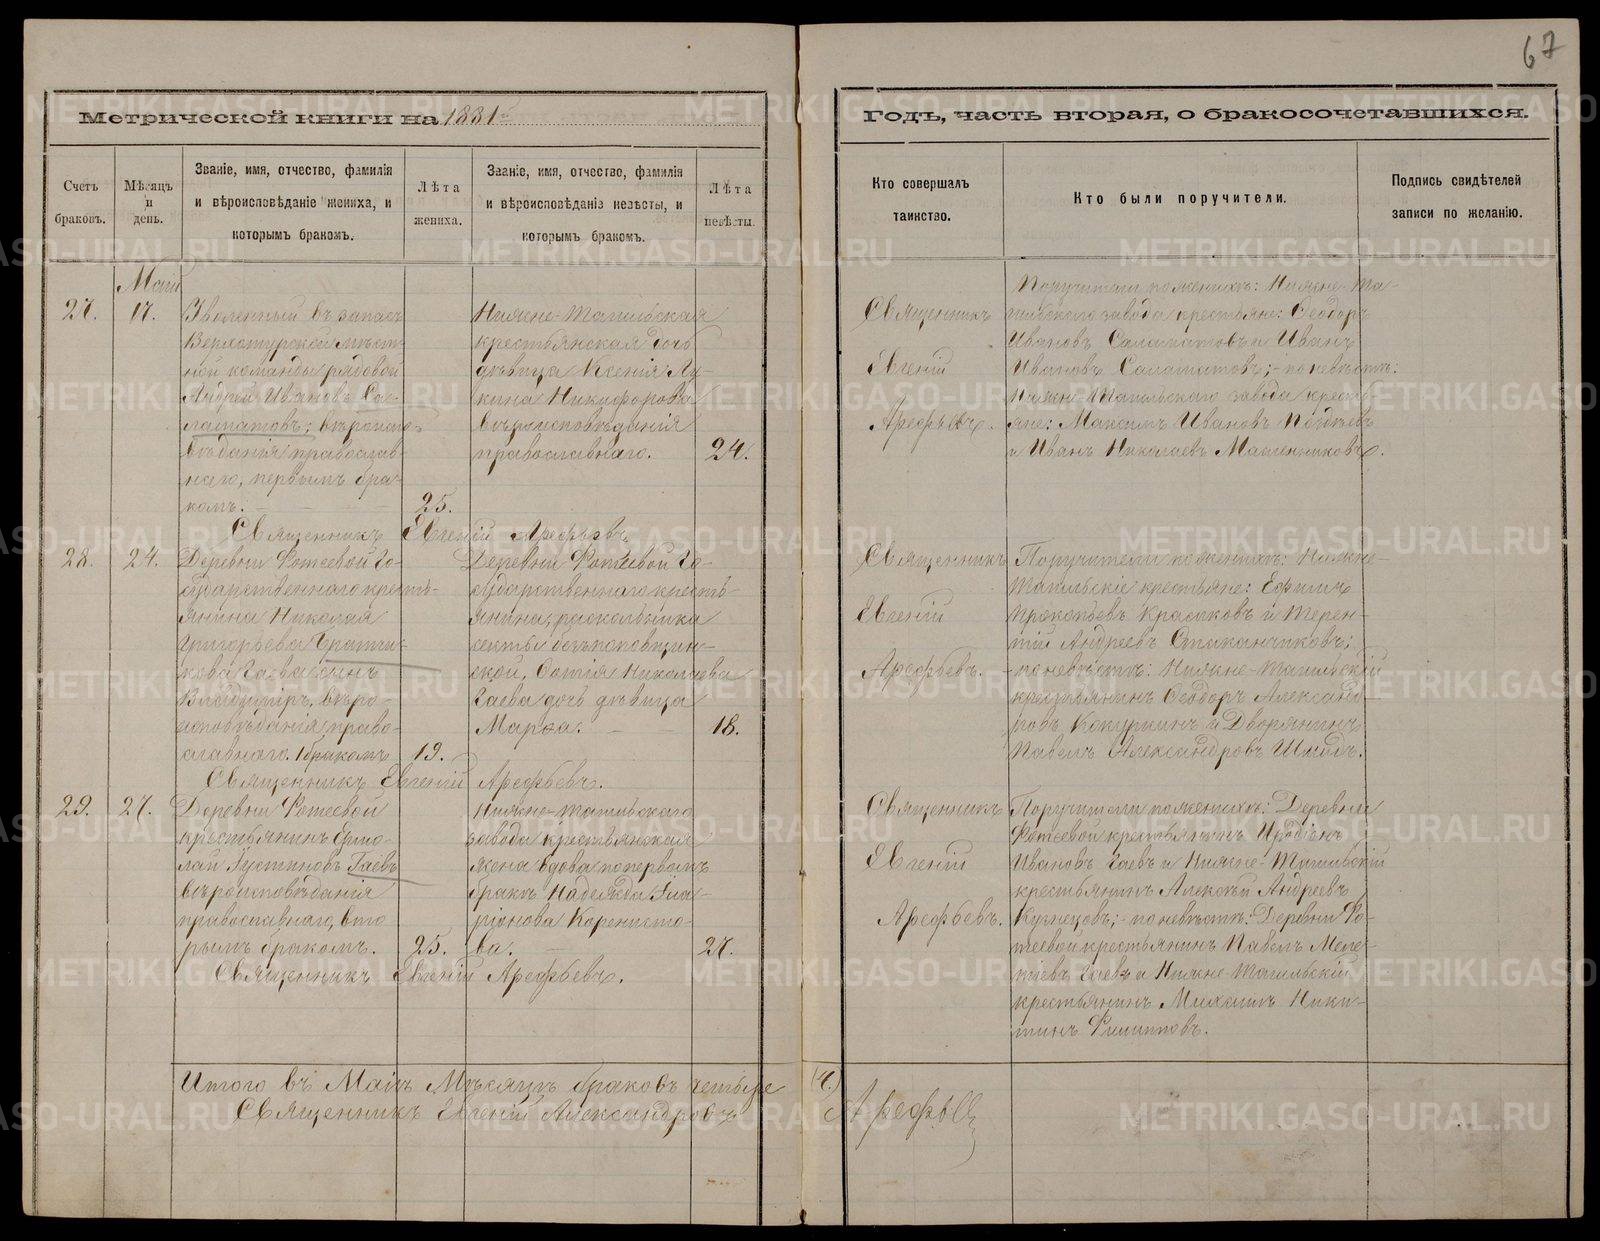 67
Метрической книги на 1881й
Годъ, часть вторая, о бракосочетавшихся.
Счетъ браковъ.
Мѣсяцъ и день.
Званіе, имя, отчество, фамилія
и вѣроисповѣданіе жениха, и
которымъ бракомъ.
Лѣта жениха.
Званіе, имя, отчество, фамилія
и вѣроисповѣданіе невѣсты, и
которымъ бракомъ.
Лѣта невѣсты.
Кто совершалъ
таинство.
Кто были поручители.
Подпись свидѣтелей
записи по желанію.
Маій
27.
17.
Уволенный въ запасъ
Верхотурской мѣст-
ной команды рядовой
Андрей Ивановъ Са-
ламатовъ; вѣроиспо-
вѣданія православ-
наго, первымъ бра-
комъ.
25.
Нижне-Тагильская
крестьянская дочь
дѣвица Ксенія Лу-
кина Никифорова
вѣроисповѣданія
православнаго.
24.
Священникъ
Евгеній
Арефьевъ.
Поручители по женихѣ: Нижне-Та-
гильскаго завода крестьяне: Ѳеодоръ
Ивановъ Саламатовъ и Иванъ
Ивановъ Саламатовъ; - по невѣстѣ:
Нижне-Тагильскаго завода кресть-
яне: Максимъ Ивановъ
и Иванъ Николаевъ
Священникъ Евгеній Арефьевъ
28.
24.
Деревни Фотеевой Го-
сударственнаго кресть-
янина Николая
Григорьева Братчи-
кова Гаева сынъ
Владиміръ, вѣро-
исповѣданія право-
славнаго. 1 бракомъ
19.
Деревни Фотеевой Го-
сударственнаго кресть-
янина, раскольника
секты безъпоповщин-
ской, Николаева
Гаева дочь дѣвица
Марѳа.
18.
Священникъ
Евгеній
Арефьевъ.
Поручители по женихѣ: Нижне-
Тагильскіе крестьяне: Ефимъ
Прокопьевъ Красаковъ и Терен-
тій Андреевъ Стаканчиковъ;
- по невѣстѣ: Нижне-Тагильскій
крестьянинъ Ѳеодоръ Александ-
ровъ и Дворянинъ
Павелъ Александровъ Шмидъ.
Священникъ Евгеній Арефьевъ.
29.
27.
Деревни Фотеевой
крестьянинъ Ермо-
лай Іустиновъ Гаевъ
вѣроисповѣданія
православнаго, вто-
рымъ бракомъ.
25.
Нижне-Тагильскаго
завода крестьянская
жена вдова по первомъ
бракѣ Надежда Ила-
ріонова Коренисто-
ва.
27.
Священникъ
Евгеній
Арефьевъ.
Поручители по женихѣ: Деревни
Фотеевой крестьянинъ Иродіонъ
Ивановъ Гаевъ и Нижне-Тагильскій
крестьянинъ Алексѣй Андреевъ
Кузнецовъ; - по невѣстѣ: Деревни Фо-
теевой крестьянинъ Павелъ Меле-
тіевъ Гаевъ и Нижне-Тагильскій
крестьянинъ Михаилъ Ники-
тинъ Филиповъ.
Священникъ Евгеній Арефьевъ.
Итого въ Маіѣ мѣсяцѣ браковъ четыре (4.)
Священникъ Евгеній Александровъ Арефьевъ
METRIKI.GASO-URAL.RU